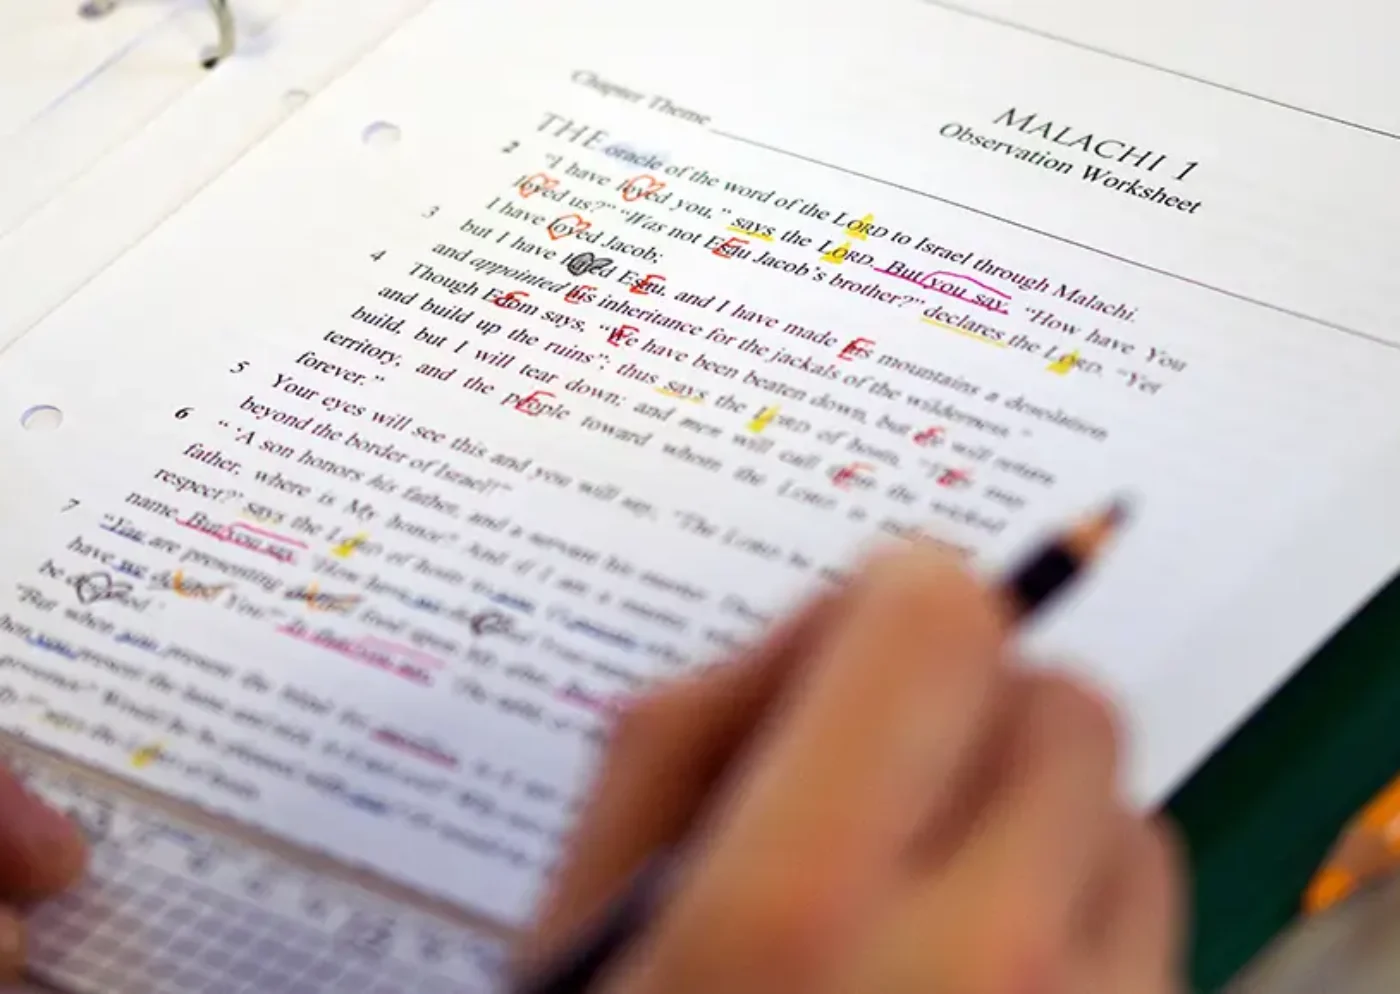 MALACHI 1
Observation Worksheet
Chapter Theme
THE oracle of the word of the LORD to Israel through Malachi.
2 "I have loved you," says the LORD. But you say, "How have You
loved us?" "Was not Esau Jacob's brother?" declares the LORD. "Yet
I have loved Jacob;
3 but I have hated Esau, and I have made his mountains a desolation
and appointed his inheritance for the jackals of the wilderness."
4 Though Edom says, "We have been beaten down, but we will return
and build up the ruins"; thus says the LORD of hosts, "They may
build, but I will tear down; and men will call them the wicked
territory, and the people toward whom the LORD is indignant
forever."
5 Your eyes will see this and you will say, "The LORD be
beyond the border of Israel!"
6 " 'A son honors his father, and a servant his master. Then
father, where is My honor? And if I am a master,
respect?' says the LORD of hosts to you,
name. But you say, 'How have we despised
7 "You are presenting defiled food upon My altar.
have we defiled You?' In that you say, 'The table of
be despised.'
"But when you present the blind for sacrifice,
when you present the lame and sick,
governor? Would he be pleased with you?
says the LORD of hosts.